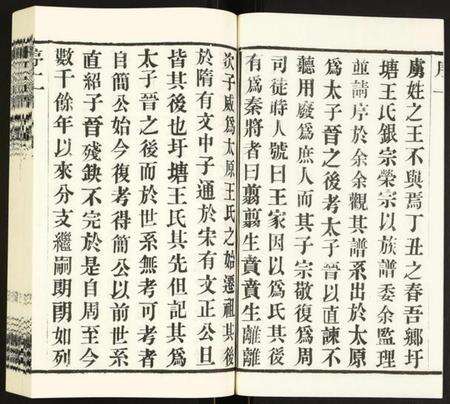 序一
虞姓之王不與焉丁丑之春吾鄉圩
塘王氏銀宗榮宗以族譜委余監理
並請序於余余觀其譜系出於太原
為太子晉之後考太子晉以直諫不
聽用廢為庶人而其子宗敬復為周
司徒時人號曰王家因以為氏其後
有為秦將者曰翦翦生賁賁生離離
次子威為太原王氏之始遷祖其後
於隋有文中子通於宋有文正公旦
皆其後也圩塘王氏其先但記其為
太子晉之後而於世系無考可考者
自簡公始今復考得簡公以前世系
直紹子晉殘缺不完於是自周至今
數千餘年以來分支繼嗣朗朗如列
序二